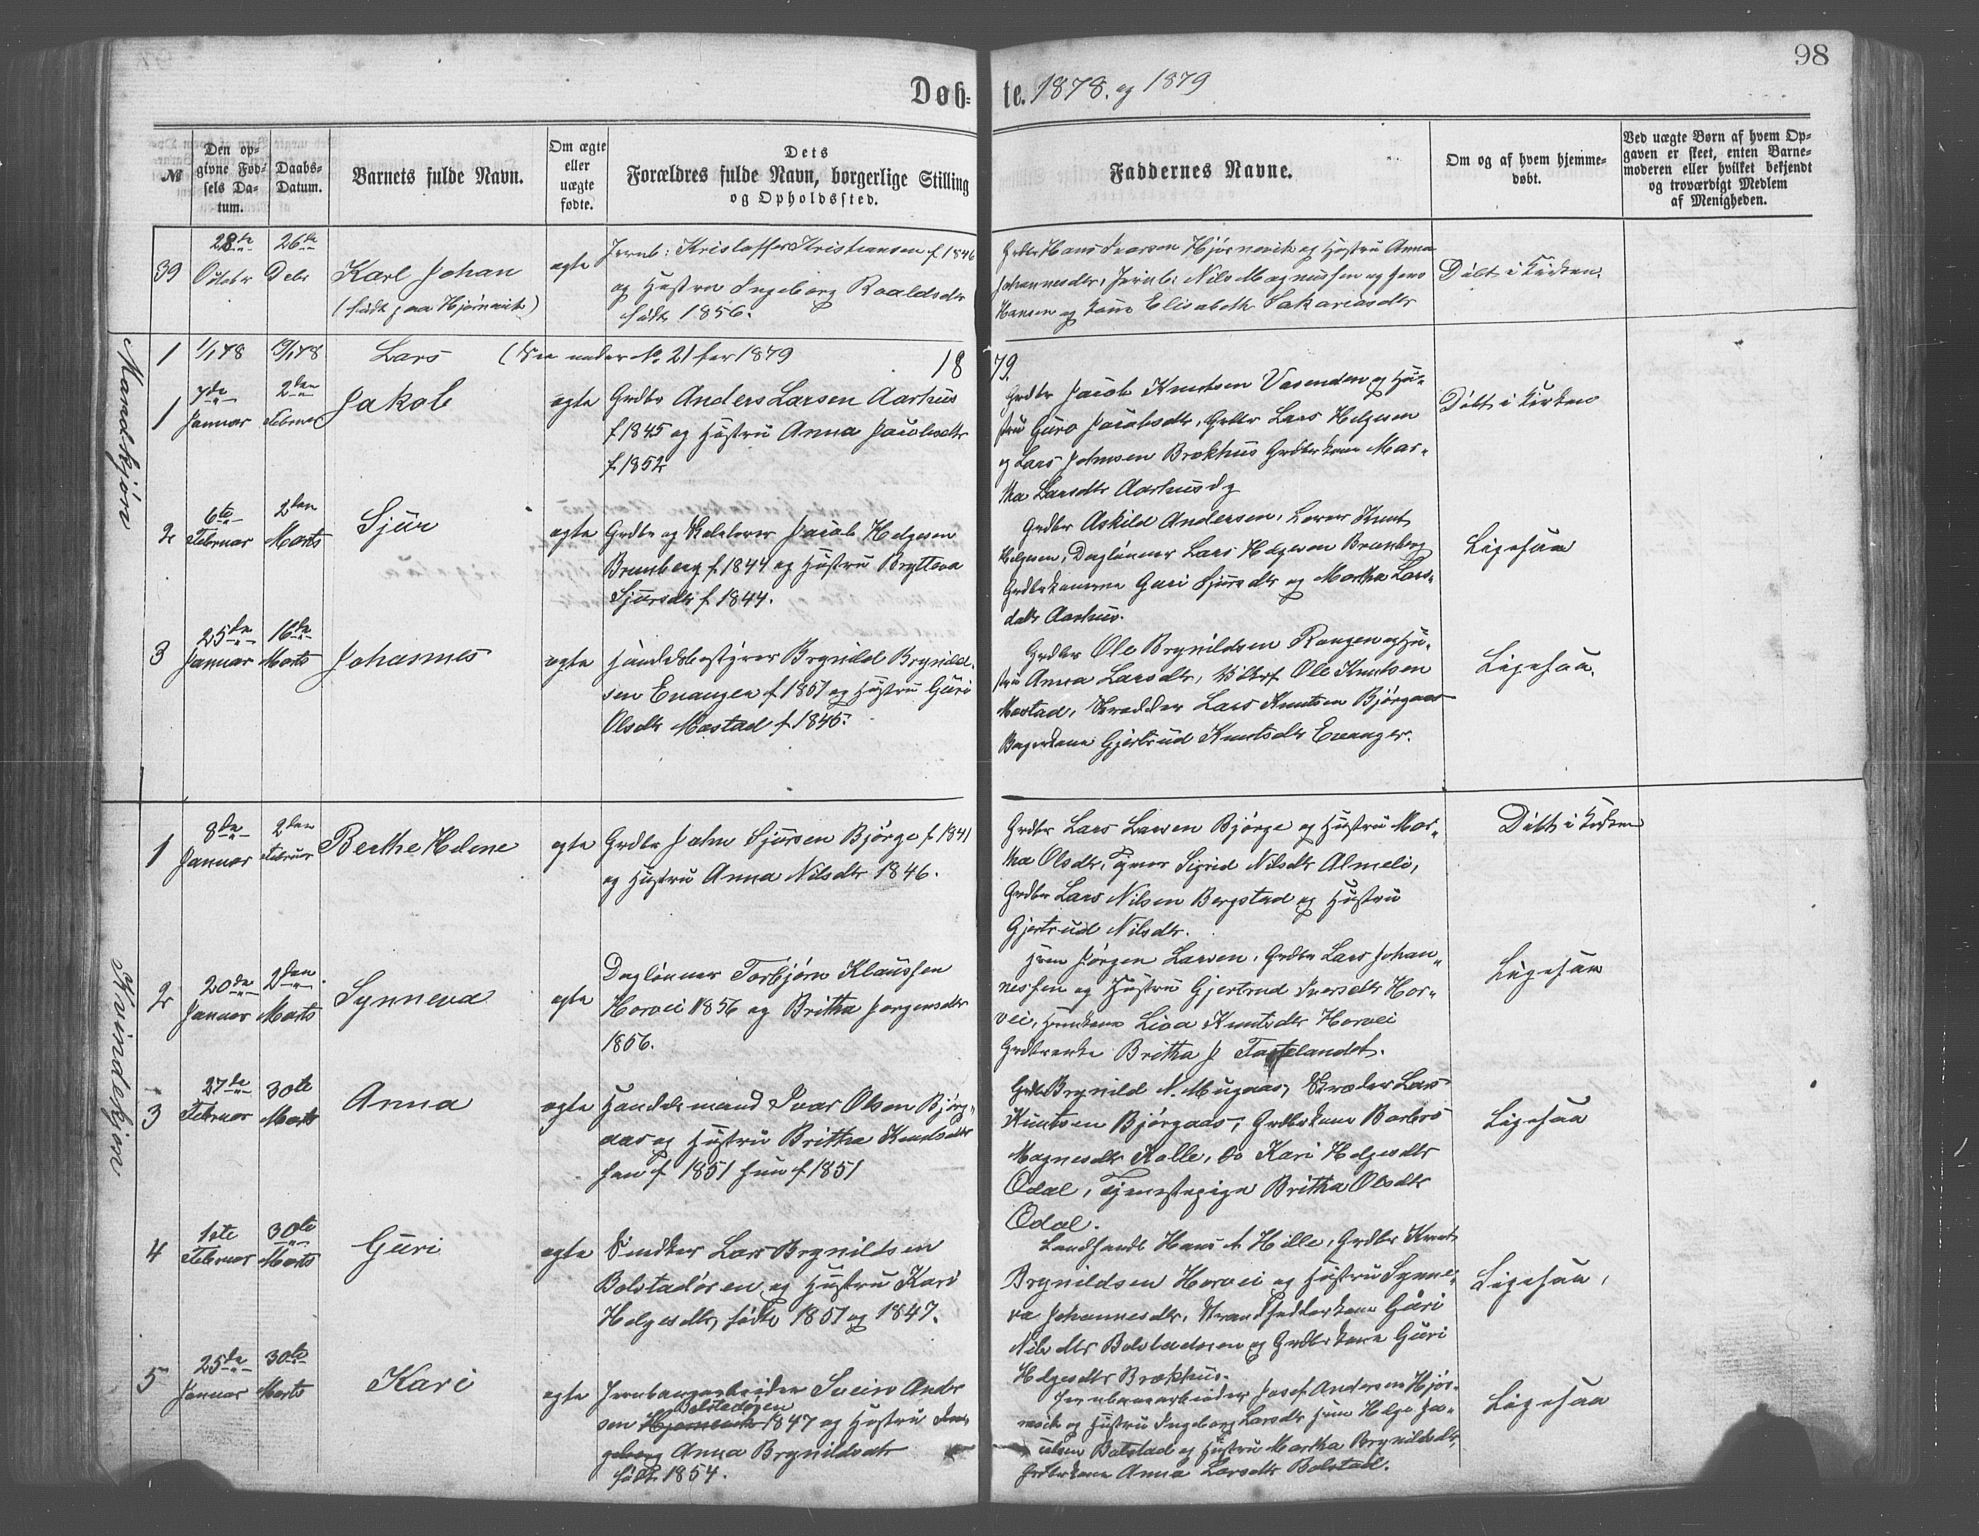 98
Døb= te. 1878. og 1879
№
Den op-
givne Fød-
sels Da-
tum.
Daabs-
Datum.
Barnets fulde Navn.
Om ægte
eller
uægte
fødte.
Dets
Forældres fulde Navn, borgerlige Stilling
og Opholdssted.
Faddernes Navne.
Om og af hvem hjemme-
døbt.
Ved uægte Børn af hvem Op-
gaven er skeet, enten Barne-
moderen eller hvilket bekjendt
og troværdigt Medlem
af Menigheden.
39
28de
Octobr
26de
Debr
Karl Johan
(født paa Hjørnevik)
ægte
Jernb: Kristoffer Kristiansen f. 1846
og Hustru Ingeborg Roaldsdr
født 1856.
Grdbr Hans Ivarsen Hjørnevik og Hustru Anna
Johannesdr, Jernb. Nils Magnussen og Jens
Hansen og Kone Elisabeth Sakariasdr
Døbt i Kirken.
Mandkjøn
1
1/1 78
13/1 78
Lars
(See under No 21 for 1879
1879.
1
7de
Januar
2den
Februar
Jakob
ægte
Grdbr Anders Larsen Aarhus
f. 1845 og Hustru Anna Jacobsdr
f. 1852
Grdbr Jacob Knutsen Vasenden og Hu-
stru Guro Jacobsdr, Grdbr Lars Helgesen
og Lars Johnsen Brækhus Grdbrkone Mar-
tha Larsdr Aarhus
Døbt i Kirken
2
6te
Februar
2den
Marts
Sjur
ægte
Grdbr og Jacob Helgesen
Brunborg f. 1844 og Hustru Brytteva
Sjursdr f. 1844.
Grdbr Askild Andersen, Lærer Knut
Helgesen, Daglønner Lars Helgesen Brunborg
Grdbrkonerne Guri Sjursdr og Martha Lars-
datr Aarhus.
Ligesaa
3
25de
Januar
16de
Marts
Johannes
ægte
Handelsbestyrer Brynild Brynild-
sen Evanger f. 1851 og Hustru Guri
Olsdr Mostad f. 1845.
Grdbr Ole Brynildsen Rongen og Hu-
stru Anna Larsdr, Ole Knutsen
Mostad, Skrædder Lars Knutsen Bjørgaas
Bagerkone Gjertrud Knutsdr Evanger.
Ligesaa.
Kvindekjøn
1
8de
Januar
2den
Februar
Berthe Helene
ægte
Grdbr John Sjursen Bjørge f. 1841
og Hustru Anna Nilsdr 1846.
Grdbr Lars Larsen Bjørge og Hustru Mar-
tha Olsdr, Tjener Sigrid Nilsdr Almeli,
Grdbr Lars Nilsen Bergstad og Hustru
Gjertrud Nilsdr.
Døbt i Kirken
2
20de
Januar
2den
Marts
Synneva
ægte
Daglønner Torbjørn Klaussen
Horvei 1856 og Britha Jørgensdr
1856.
Hmd Jørgen Larsen, Grdbr Lars Johan-
nessen og Hustru Gjertrud Iversdr Hor-
vei, Hmdkone Liva Knutsdr Horvei
Grdbrenke Britha J
Ligesaa
3
27de
Februar
30te
Marts
Anna
ægte
Handelsmand Ivar Olsen Bjørg-
aas og Hustru Britha Knutsdr
han f. 1851 hun f. 1851
Grdbr Brynild N. Mugaas, Skræder Lars
Knutsen Bjørgaas, Grdbrkone Barbro
Magnesdr Kalle, Do Kari Helgesdr
Odal, Tjenestepige Britha Olsdr
Odal.
Ligesaa
4
1ste
Februar
30te
Marts
Guri
ægte
Snedker Lars Brynildsen
Bolstadøren og Hustru Kari
Helgesdr, fødte 1851 og 1847.
Landhandl Hans A Hille, Grdbr Knut
Brynildsen Horvei og Hustru Synne-
va Johannesdr, Strandsidderkone Guri
Nilsdtr Bolstadøren og Grdbrkone Guri
Helgesdr Brækhus.
Ligesaa,
5
25de
Januar
30te
Marts
Kari
ægte
Jernbanearbeider Svein Andr
Bolstadøren
sen Hjørnevik 1847 og Hustru Inn-
geborg Anna Brynildsdr
født 1854.
Jernbanearbeider Josef Andersen Hjør-
nevik og Hustru Ingeborg Larsdr Hmd Helge Ja-
Bolstad og Hustru Martha Brynildsdr,
Grdbrkone Anna Larsdr Bolstad.
Ligesaa